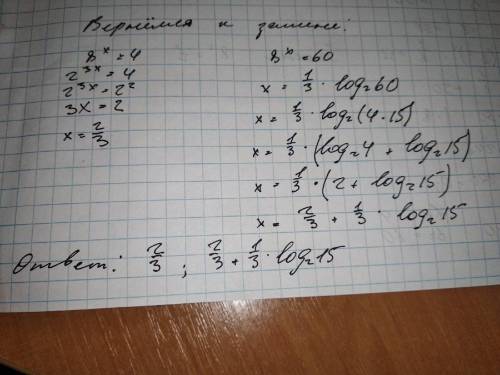 Вернёмся к замене:
8^x = 4
2^{3x} = 4
2^{3x} = 2^2
3x = 2
x = 2/3
8^x = 60
x = 1/3 · log₂60
x = 1/3 · log₂(4·15)
x = 1/3 · (log₂4 + log₂15)
x = 1/3 · (2 + log₂15)
x = 2/3 + 1/3 · log₂15
Ответ: 2/3 ; 2/3 + 1/3 · log₂15